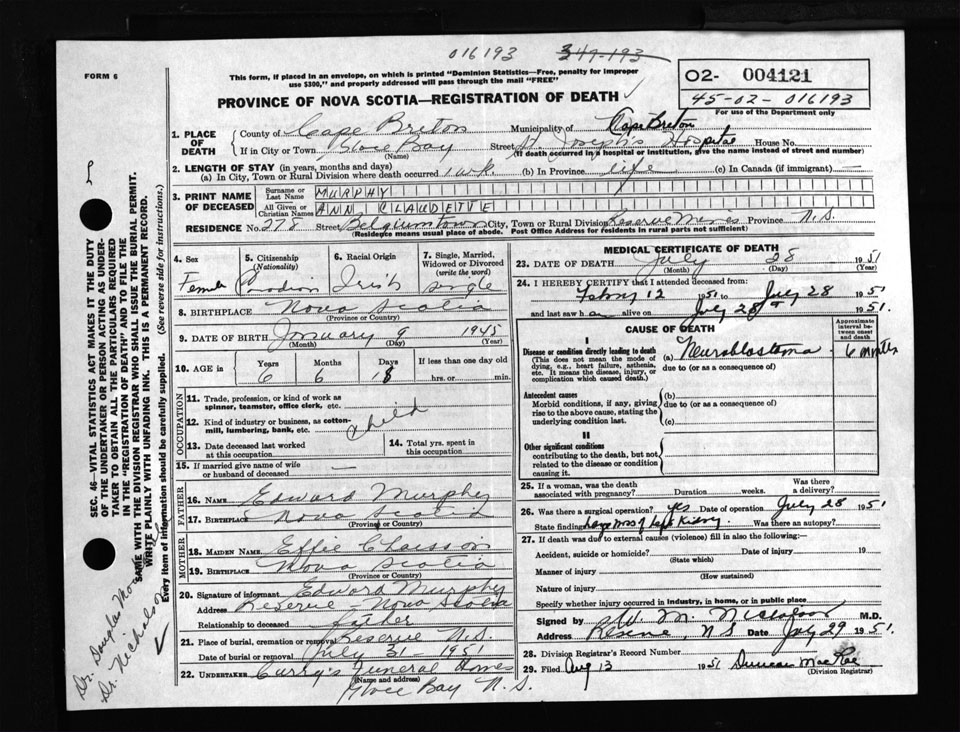 016193 349-193
FORM 6
This form, if placed in an envelope, on which is printed "Dominion Statistics—Free, penalty for improper
use $300," and properly addressed will pass through the mail "FREE"
02- 004121
45-02-016193
For use of the Department only
PROVINCE OF NOVA SCOTIA—REGISTRATION OF DEATH
1. PLACE OF DEATH
County of Cape Breton Municipality of Cape Breton
If in City or Town Glace Bay Street St. Joseph's Hospital House No.
(Name) (If death occurred in a hospital or institution, give the name instead of street and number)
2. LENGTH OF STAY (in years, months and days)
(a) In City, Town or Rural Division where death occurred 1 wk. (b) In Province life (c) In Canada (if immigrant)
3. PRINT NAME OF DECEASED
Surname or Last Name MURPHY
All Given or Christian Names ANN CLAUDETTE
RESIDENCE No. 278 Street Belgiumtown City, Town or Rural Division Reserve Mines Province N.S.
(Residence means usual place of abode. Post Office Address for residents in rural parts not sufficient)
4. Sex Female
5. Citizenship (Nationality) Canadian
6. Racial Origin Irish
7. Single, Married, Widowed or Divorced (write the word) single
8. BIRTHPLACE Nova Scotia
(Province or Country)
9. DATE OF BIRTH January 9 1945
(Month) (Day) (Year)
10. AGE in Years Months Days If less than one day old
6 6 hrs. or min.
OCCUPATION
11. Trade, profession, or kind of work as
spinner, teamster, office clerk, etc.
12. Kind of industry or business, as cotton-
mill, lumbering, bank, etc. child
13. Date deceased last worked
at this occupation
14. Total yrs. spent in
this occupation
15. If married give name of wife
or husband of deceased —
FATHER
16. NAME Edward Murphy
17. BIRTHPLACE Nova Scotia
(Province or Country)
MOTHER
18. MAIDEN NAME Effie Chaisson
19. BIRTHPLACE Nova Scotia
(Province or Country)
20. Signature of informant Edward Murphy
Address Reserve - Nova Scotia
Relationship to deceased father
21. Place of burial, cremation or removal Reserve N.S.
Date of burial or removal July 31 - 1951
22. UNDERTAKER Curry's Funeral Home
(Name and address)
Glace Bay N.S.
MEDICAL CERTIFICATE OF DEATH
23. DATE OF DEATH July 28 1951
(Month) (Day) (Year)
24. I HEREBY CERTIFY that I attended deceased from:
12 1951 to July 28 1951
and last saw h alive on July 28th 1951.
CAUSE OF DEATH
Approximate interval between onset and death
I
Disease or condition directly leading to death (a) Neuroblastoma 6 months
(This does not mean the mode of
dying, e.g., heart failure, asthenia,
etc. It means the disease, injury, or
complication which caused death.)
due to (or as a consequence of)
Antecedent causes (b)
Morbid conditions, if any, giving
rise to the above cause, stating the
underlying condition last.
due to (or as a consequence of)
(c)
II
Other significant conditions
contributing to the death, but not
related to the disease or condition
causing it.
25. If a woman, was the death
associated with pregnancy? Duration weeks. Was there a delivery?
26. Was there a surgical operation? yes Date of operation July 28 1951
State finding Large Mass of left Kidney. Was there an autopsy?
27. If death was due to external causes (violence) fill in also the following:—
Accident, suicide or homicide? Date of injury 19
(State which)
Manner of injury
(How sustained)
Nature of injury
Specify whether injury occurred in industry, in home, or in public place
Signed by M. Nicholson M.D.
Address Reserve, N S Date July 29 1951.
28. Division Registrar's Record Number
29. Filed Aug 13 1951 Duncan MacRae
(Division Registrar)
SEC. 46—VITAL STATISTICS ACT MAKES IT THE DUTY
OF THE UNDERTAKER OR PERSON ACTING AS UNDER-
TAKER TO OBTAIN ALL THE PARTICULARS REQUIRED
IN THE "REGISTRATION OF DEATH" AND TO FILE THE
SAME WITH THE DIVISION REGISTRAR WHO SHALL ISSUE THE BURIAL PERMIT.
WRITE PLAINLY WITH UNFADING INK. THIS IS A PERMANENT RECORD.
Every item of information should be carefully supplied. (See reverse side for instructions.)
Dr. Douglas
Dr. Nicholson